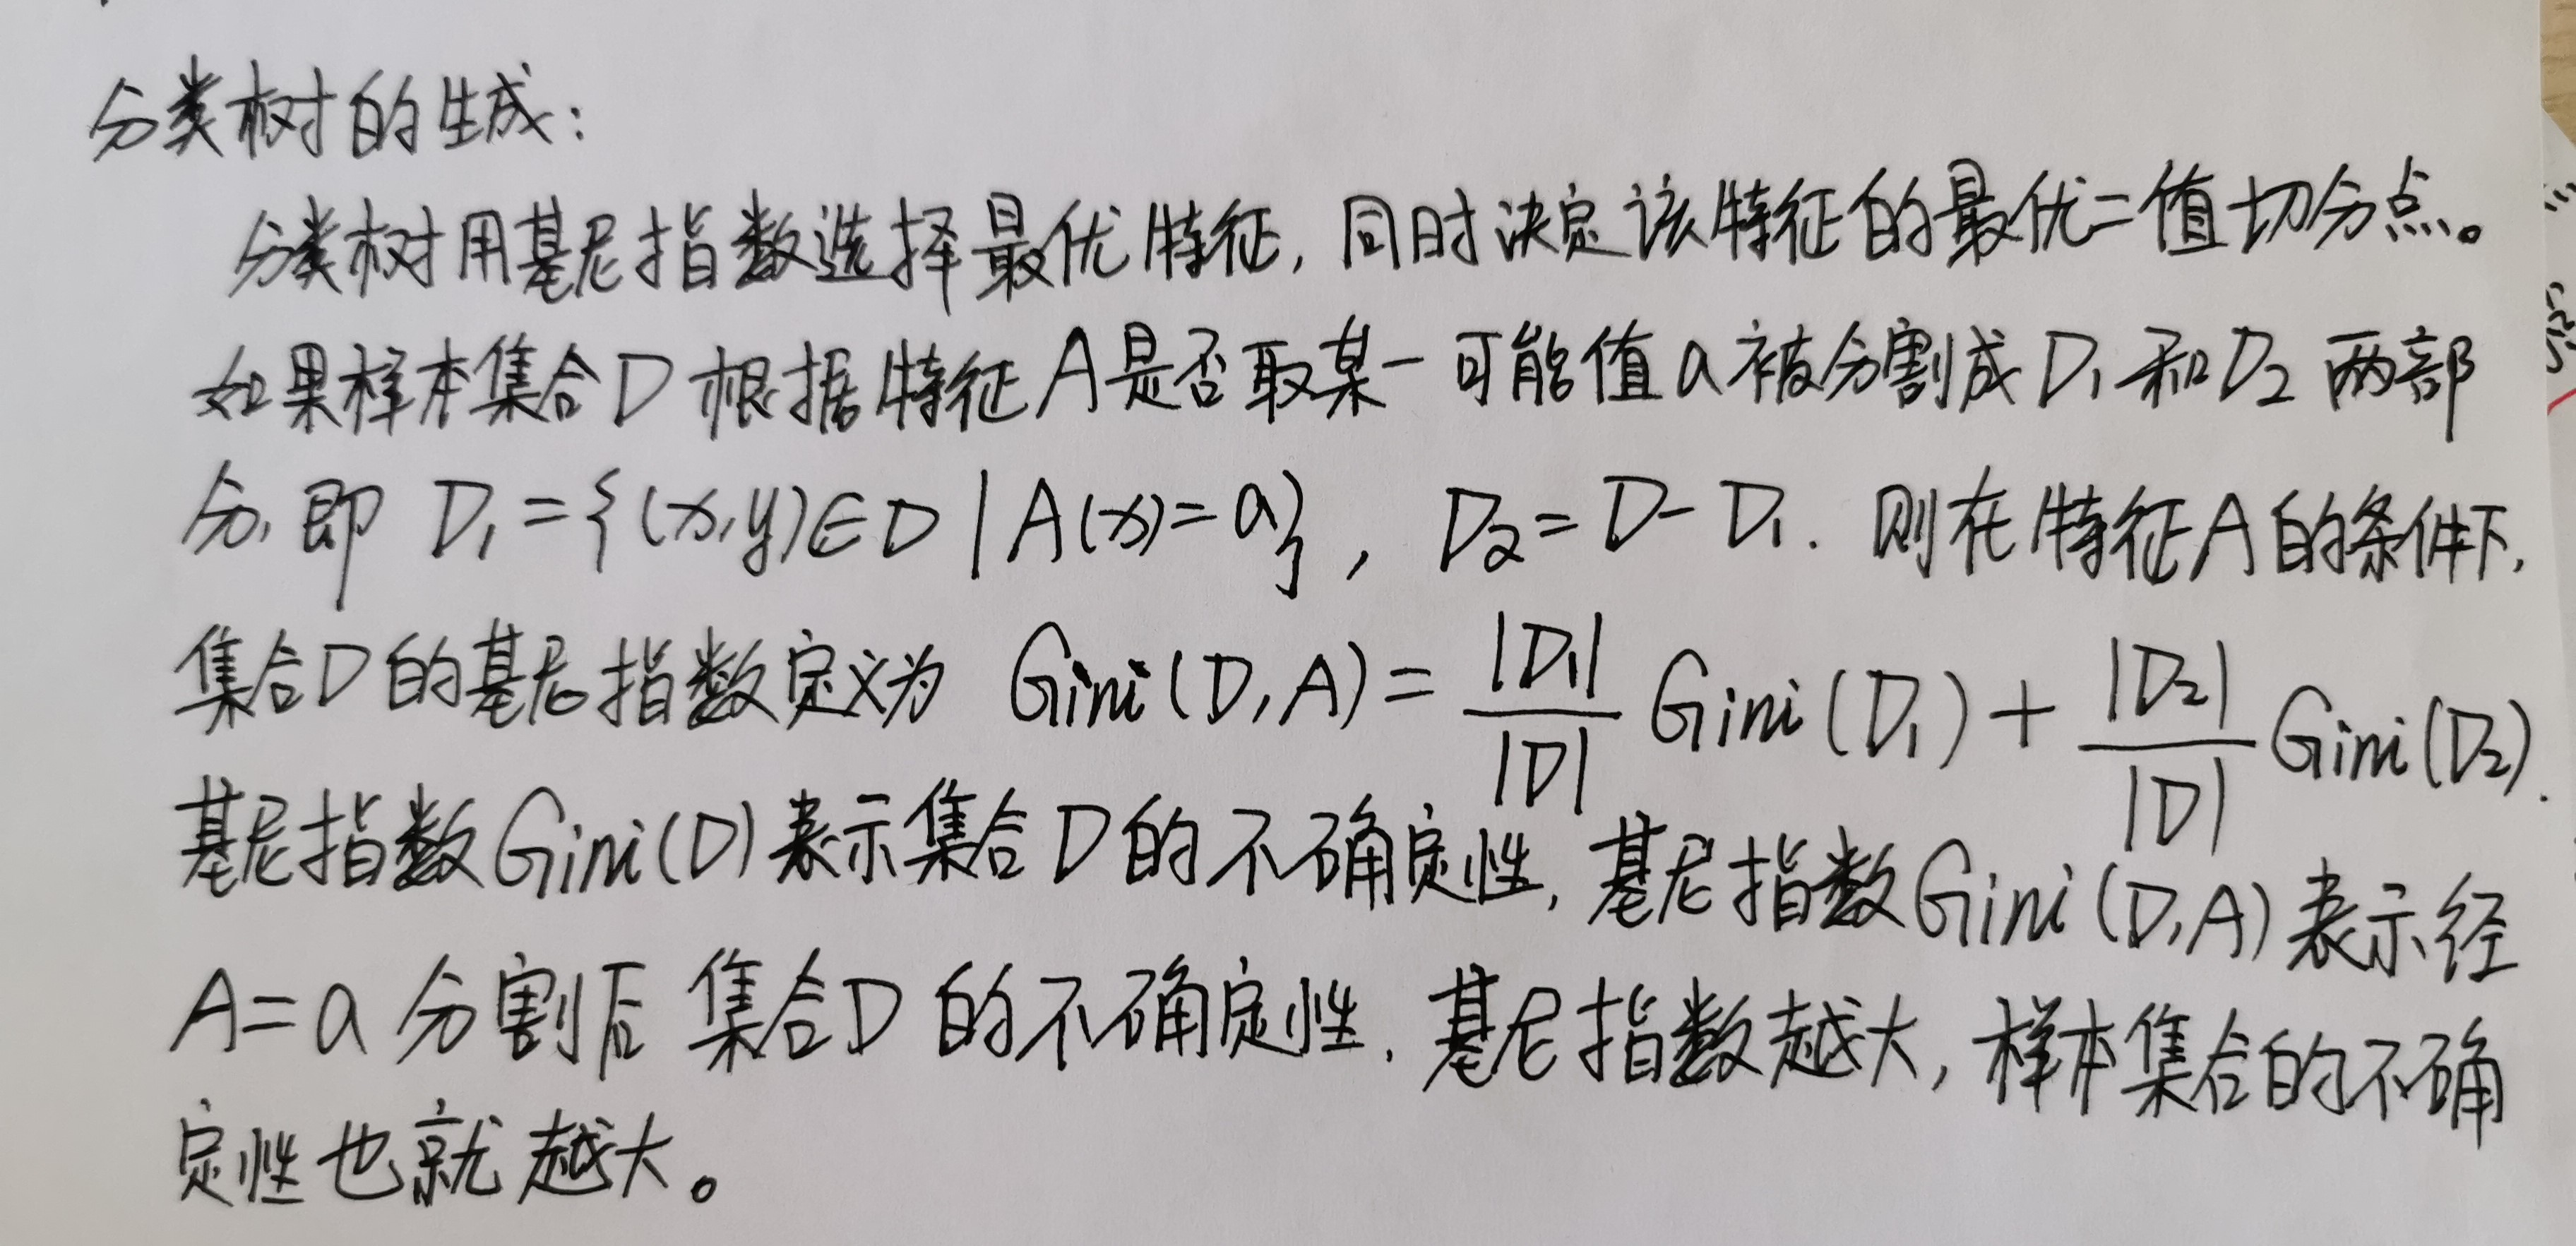 分类树的生成:
分类树用基尼指数选择最优特征,同时决定该特征的最优二值切分点。
如果样本集合D根据特征A是否取某一可能值a被分割成D₁和D₂两部
分,即 D₁={(x,y)∈D|A(x)=a}, D₂=D-D₁. 则在特征A的条件下,
集合D的基尼指数定义为 Gini(D,A)=|D₁|/|D| Gini(D₁)+|D₂|/|D| Gini(D₂).
基尼指数Gini(D)表示集合D的不确定性,基尼指数Gini(D,A)表示经
A=a分割后集合D的不确定性.基尼指数越大,样本集合的不确
定性也就越大。